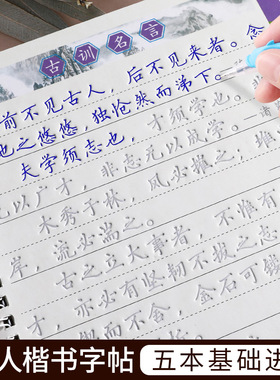 古训名言
前不见古人，后不见来者。念
也之悠悠，独怆然而涕下。
夫学须志也，才须学也。
无以广才，非志无以成学。
木秀于林，风必摧之；
岸，流必湍之。
古之立大事者，不惟有
才，亦必有坚韧不拔之志
锲而不舍，金石可镂
人楷书字帖
五本基础进